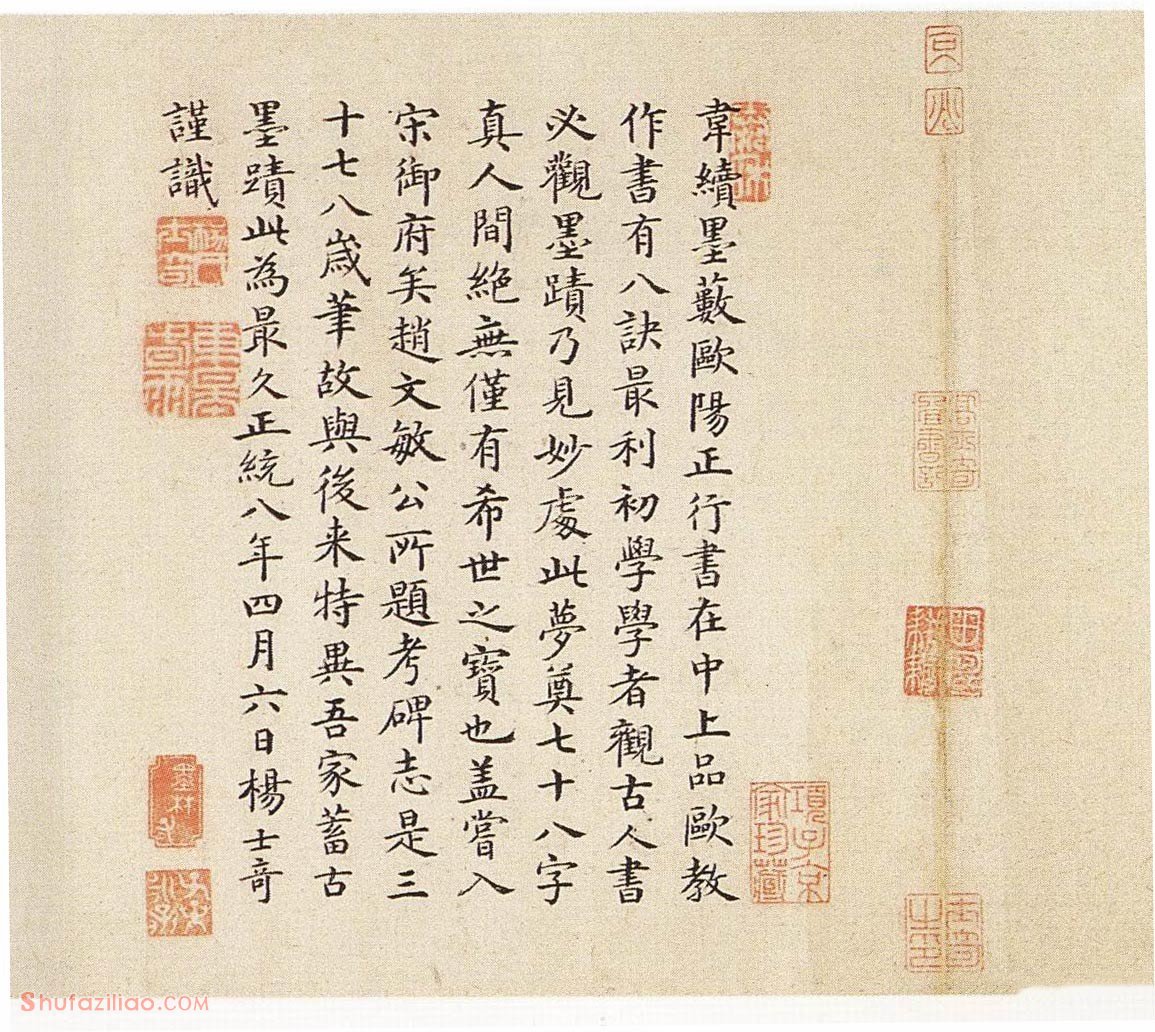 韋續墨藪歐陽正行書在中上品歐教
作書有八訣最利初學學者觀古人書
必觀墨蹟乃見妙處此夢奠七十八字
真人間絕無僅有希世之寶也盖嘗入
宋御府矣趙文敏公所題考碑志是三
十七八歲筆故與後来特異吾家蓄古
墨蹟此為最久正統八年四月六日楊士奇
謹識
楊士奇
項子京家珍藏
Shufaziliao.COM